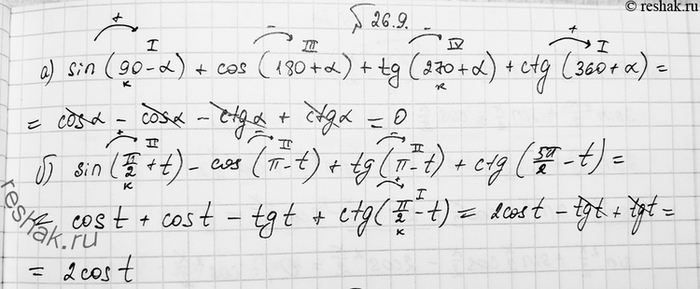 © reshak.ru
№ 26.9.
+ I - III - IV + I
а) sin (90-α) + cos (180+α) + tg (270+α) + ctg (360+α) =
к к
= cosα - cosα - ctgα + ctgα = 0
+ II - II - II
б) sin(π/2 + t) - cos (π-t) + tg(π-t) + ctg (5π/2 - t) =
к + I
= cost + cost - tgt + ctg(π/2 - t) = 2cost - tgt + tgt =
к
= 2cost
reshak.ru